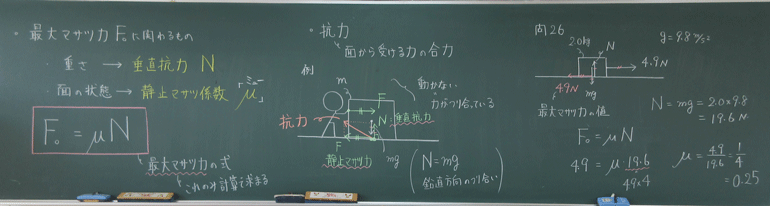 ・最大マサツ力 F₀に関わるもの
・重さ → 垂直抗力 N
・面の状態 → 静止マサツ係数「μ」
ミュー
F₀ = μN
最大マサツ力の式
これのみ計算で求まる
・抗力
面から受ける力の合力
例
m
F
動かない
力がつり合っている
抗力
N:垂直抗力
F
静止マサツ力
mg
N=mg
鉛直方向のつり合い
問26
g=9.8m/s²
2.0kg
N
4.9N
4.9N
mg
最大マサツ力の値
N = mg = 2.0×9.8
= 19.6N
F₀ = μN
4.9 = μ 19.6
4.9×4
μ = 4.9/19.6 = 1/4
= 0.25